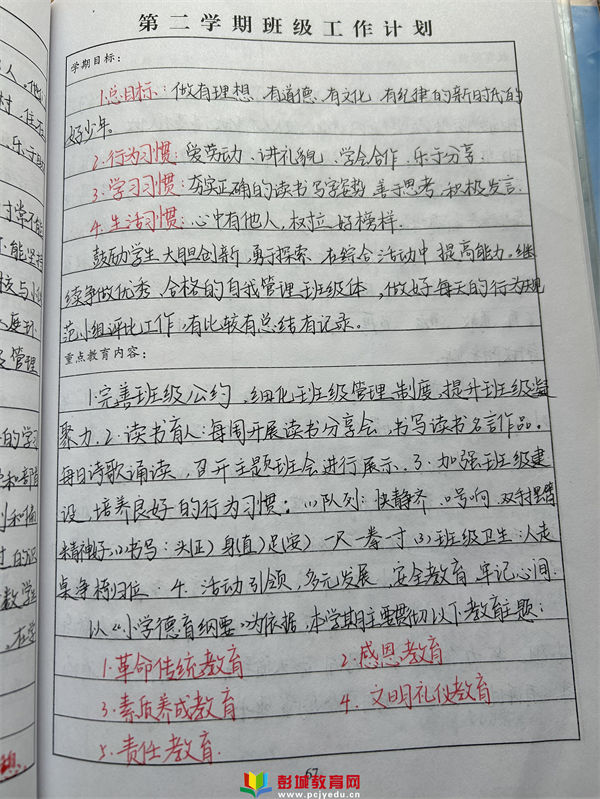 第二学期班级工作计划
学期目标：
1.总目标：做有理想、有道德、有文化、有纪律的新时代的
好少年。
2.行为习惯：爱劳动、讲礼貌、学会合作、乐于分享.
3.学习习惯：夯实正确的读书写字姿势、善于思考、积极发言.
4.生活习惯：心中有他人，权拉好榜样.
鼓励学生大胆创新，勇于探索，在综合活动中提高能力，继
续争做优秀、合格的自我管理班级体，做好每天的行为规
范小组评比工作，有比较有总结有记录。
重点教育内容：
1.完善班级公约，细化班级管理制度，提升班级凝
聚力.2.读书育人：每周开展读书分享会，书写读书名言作品。
每日诗歌诵读，召开主题班会进行展示.3.加强班级建
设，培养良好的行为习惯：(1)队列：快静齐、口号响、双手摆臂
精神好.(2)书写：头(正)身(直)足(安)一尺一拳一寸(3)班级卫生：人走
桌净椅归位.4.活动引领，多元发展，安全教育，牢记心间.
以《小学德育纲要》为依据，本学期主要贯彻以下教育主题：
1.革命传统教育 2.感恩教育
3.素质养成教育 4.文明礼仪教育
5.责任教育.
67
彭城教育网
www.pcjyedu.cn